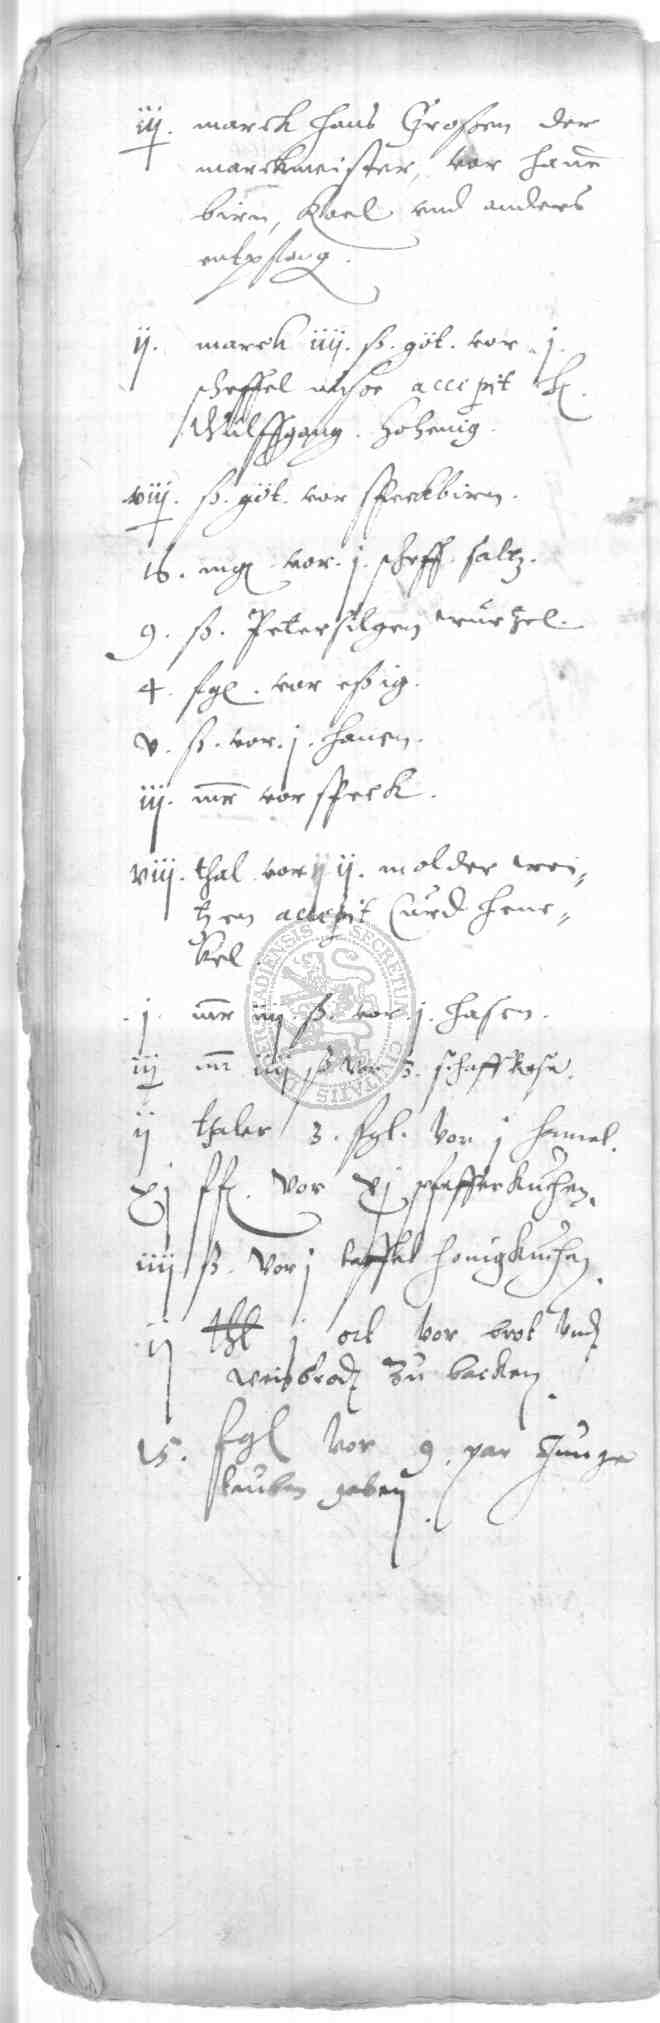 iij. marck Hans Grossen der
marckmeister, vor hanen
birn, Koel und anders
entpfang.
ij. marck iiij. ß. göt. vor j.
scheffel accepit
Wulffgang.
viij. ß. göt. vor speckbirn.
16. mgl vor. j. scheff. saltz.
9. ß. Petersilgen wurtzel.
4. fgl. vor essig.
v. ß. vor. j. hanen.
iij. mr vor speck.
viij. thal. vor ij. molder wei„
tzen accepit Curd Hene„
kel.
.j. mr iiij. ß. vor. j. hasen.
iij mr iiij ß vor 3. schaffkese.
ij thaler 3. fgl. vor j hamel.
xj ß. vor xj pfefferkuchen.
iiij ß. vor j taffel honigkuchen.
ij thl j ort vor brot vnd
weisbrodt zu backen.
15. fgl vor 9. par Junge
tauben geben.
SECRETI CIVITATIS